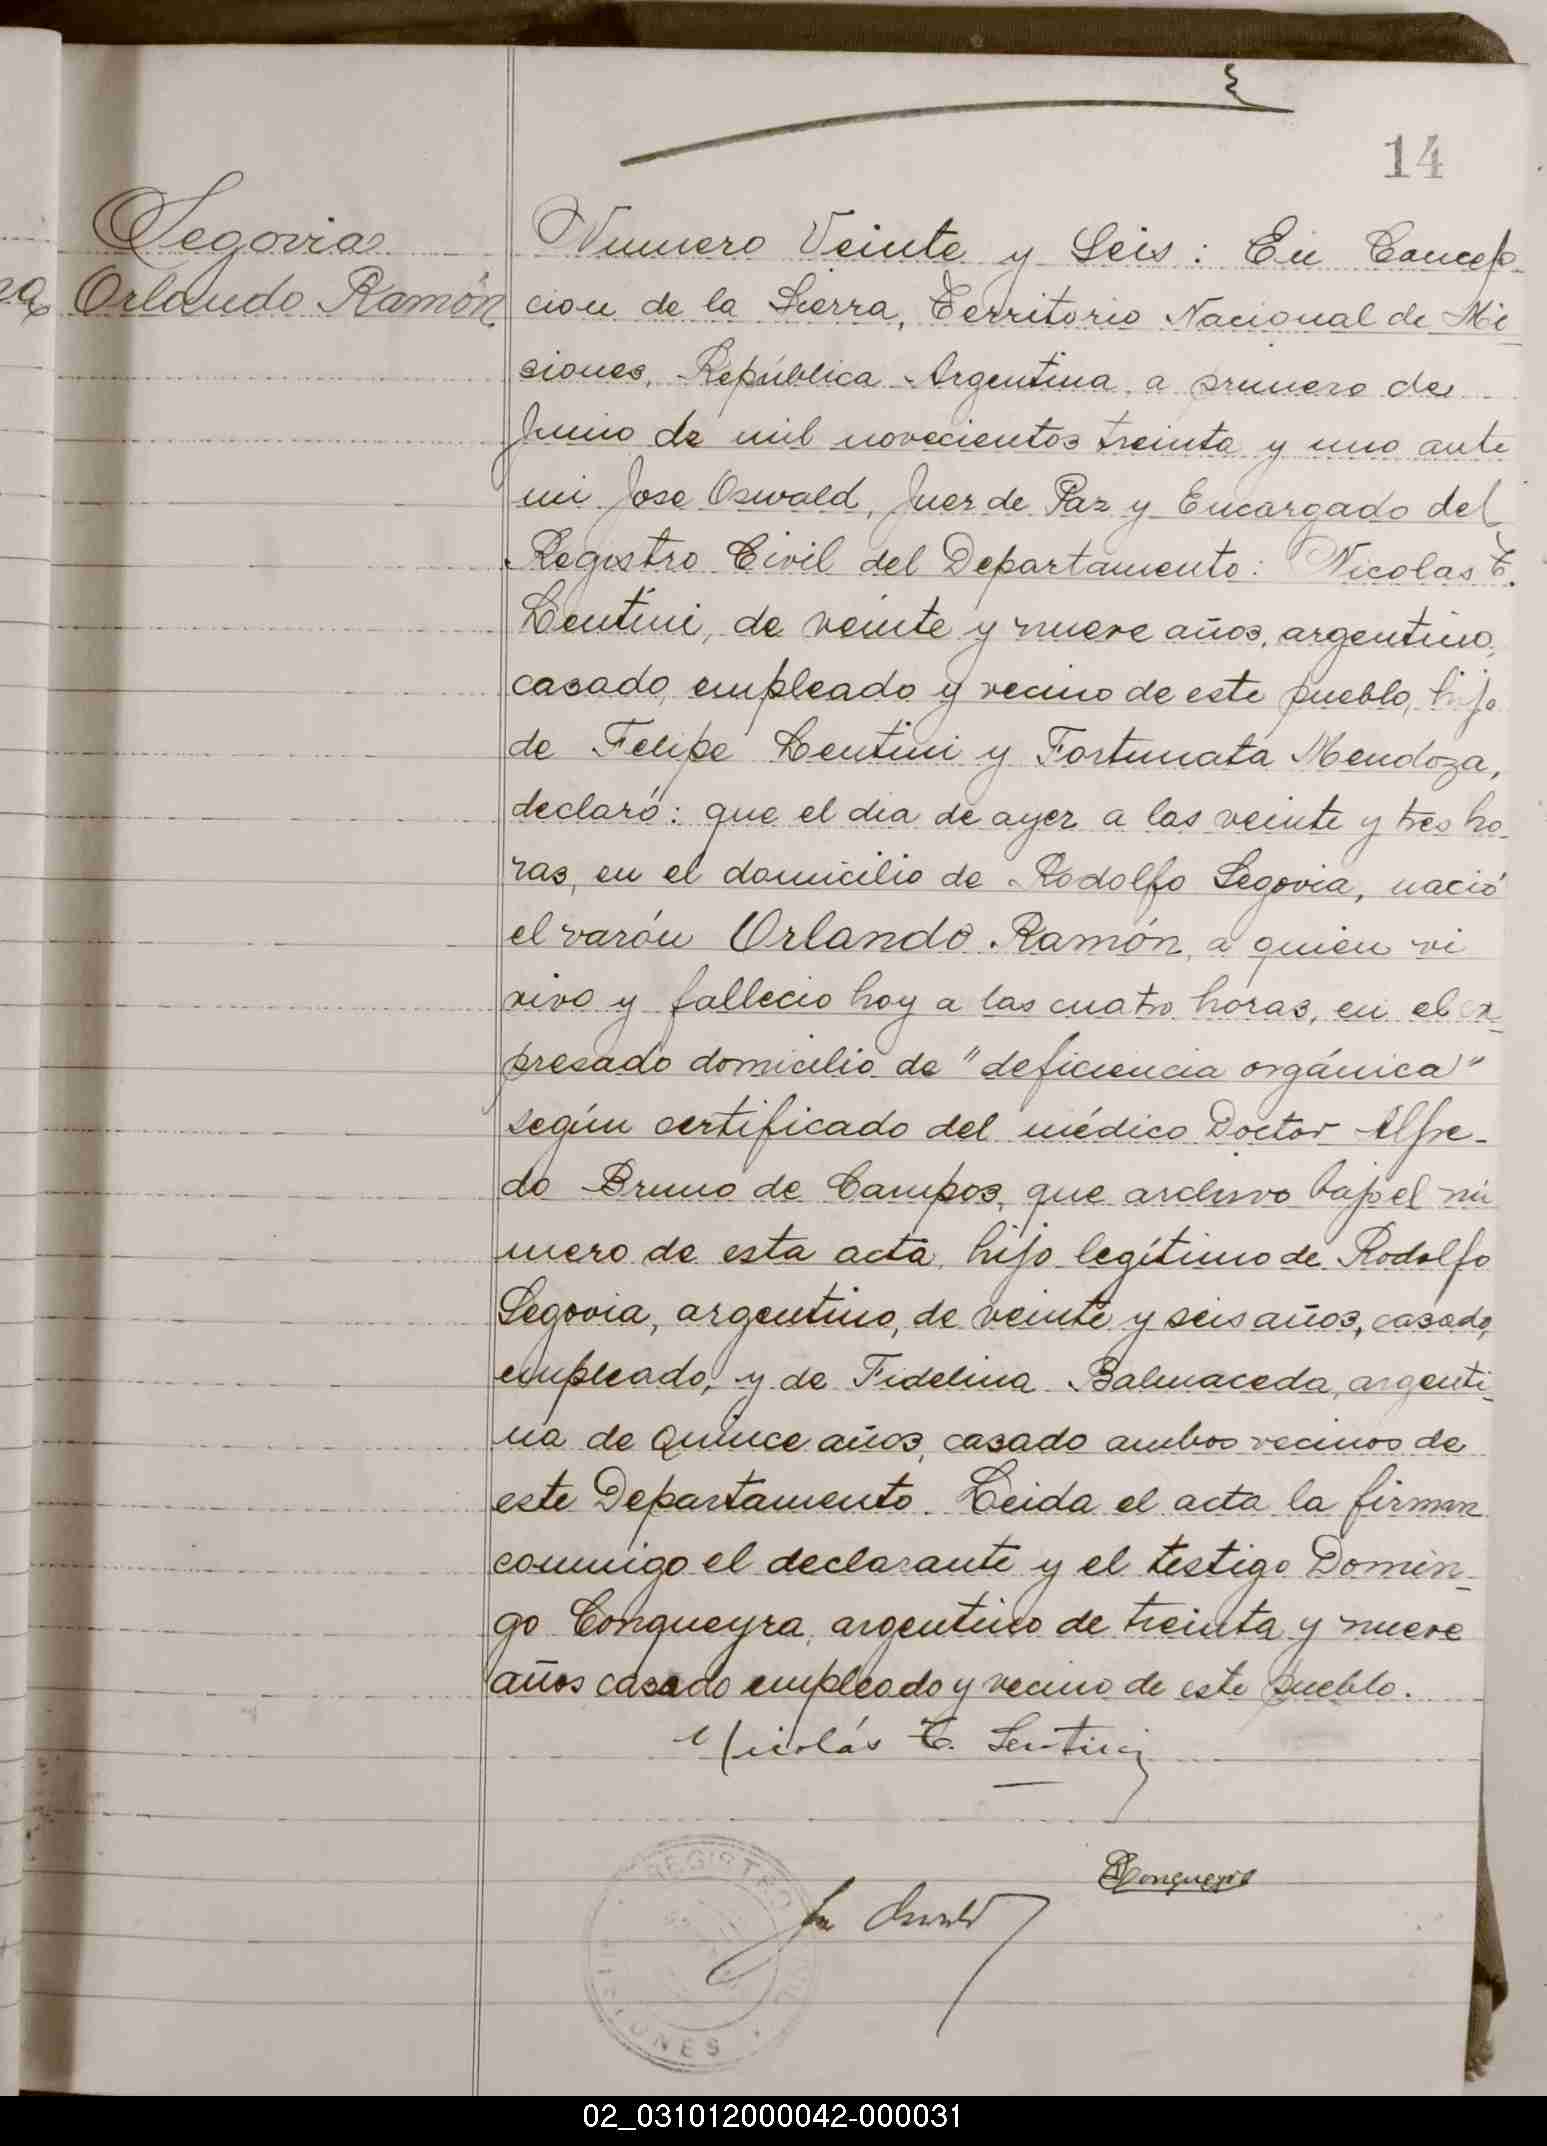 14
Segovia
Orlando Ramón
Numero Veinte y Seis: En Concep-
cion de la Sierra, Territorio Nacional de Mi-
siones, República Argentina, a primero de
Junio de mil novecientos treinta y uno ante
mi Jose Oswald, Juez de Paz y Encargado del
Registro Civil del Departamento: Nicolas T.
Lentini, de veinte y nueve años, argentino,
casado, empleado y vecino de este pueblo, hijo
de Felipe Lentini y Fortunata Mendoza,
declaró: que el dia de ayer a las veinte y tres ho-
ras, en el domicilio de Rodolfo Segovia, nació
el varón Orlando Ramón, a quien vi
vivo y fallecio hoy a las cuatro horas, en el ex-
presado domicilio de "deficiencia orgánica"
según certificado del médico Doctor Alfre-
do Bruno de Campos, que archivo bajo el nú
mero de esta acta, hijo legítimo de Rodolfo
Segovia, argentino, de veinte y seis años, casado,
empleado, y de Fidelina Balmaceda, argenti-
na de quince años, casado ambos vecinos de
este Departamento. Leida el acta la firman
conmigo el declarante y el testigo Domin-
go Conqueyra, argentino de treinta y nueve
años casado empleado y vecino de este pueblo.
Nicolás T. Lentini
DConqueyra
Jose Oswald
REGISTRO
MISIONES
02_031012000042-000031